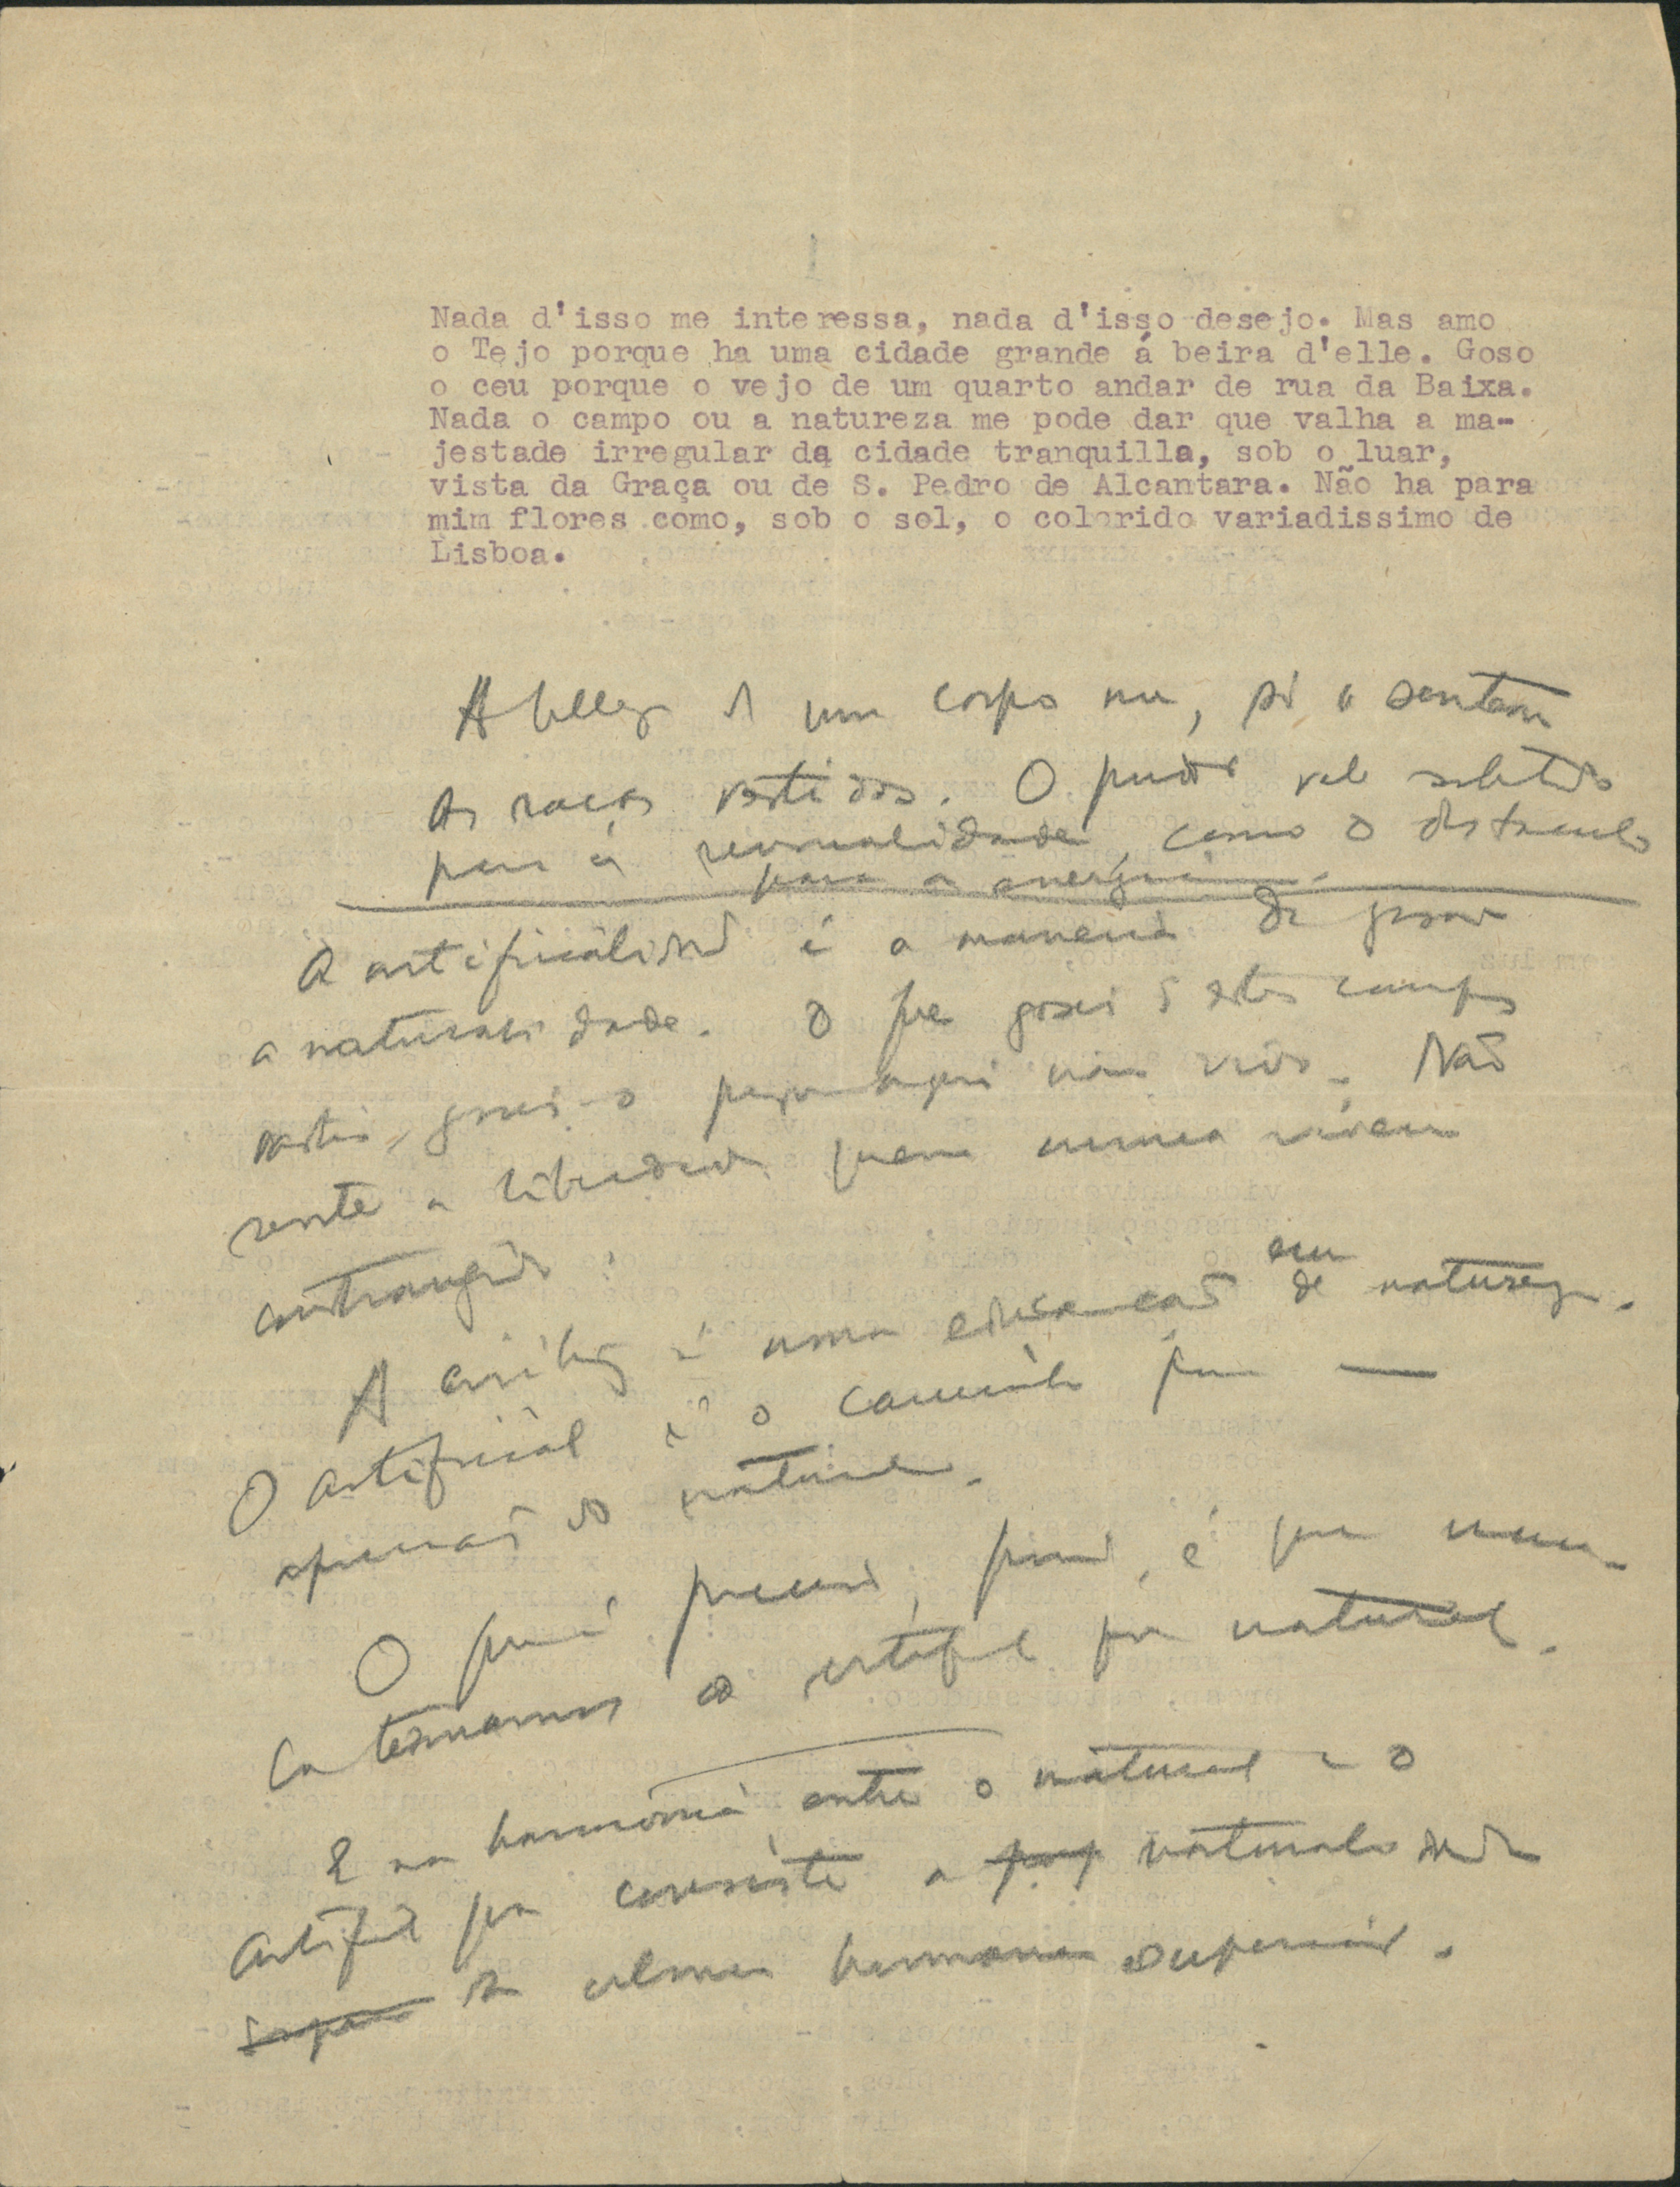 Nada d'isso me interessa, nada d'isso desejo. Mas amo
o Tejo porque ha uma cidade grande á beira d'elle. Goso
o ceu porque o vejo de um quarto andar de rua da Baixa.
Nada o campo ou a natureza me pode dar que valha a ma-
jestade irregular da cidade tranquilla, sob o luar,
vista da Graça ou de S. Pedro de Alcantara. Não ha para
mim flores como, sob o sol, o colorido variadissimo de
Lisboa.
A belleza de um corpo nu, só a sentem
as raças vestidas. O pudor vale sobretudo
para a sensualidade, como o obstaculo
para a energia.
A artificialidade é a maneira de gosar
a naturalidade. O que gosei d'estes campos
vastos, gosei-o porque aqui não vivo. Não
sente a liberdade quem nunca viveu
constrangido.
A civilização é uma educação de natureza.
em
O artificial é o caminho para
apreciação do natural.
O que é preciso, porém, é que nunca
tomemos o artificial por natural.
É na harmonia entre o natural e o
artificial que consiste a naturalidade
da alma humana superior.